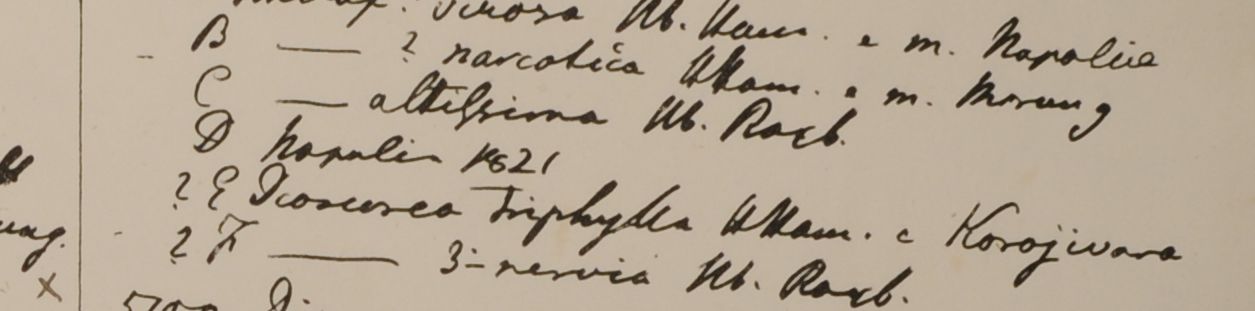 Hb. Ham. e m. Napalia
B — ? narcotica HHam. e m. Morung
C — altissima Hb. Roxb.
D Napalia 1821
? E Dioscorea Triphylla HHam. e Korojwara
? F — 3-nervia Hb. Roxb.
ung.
x